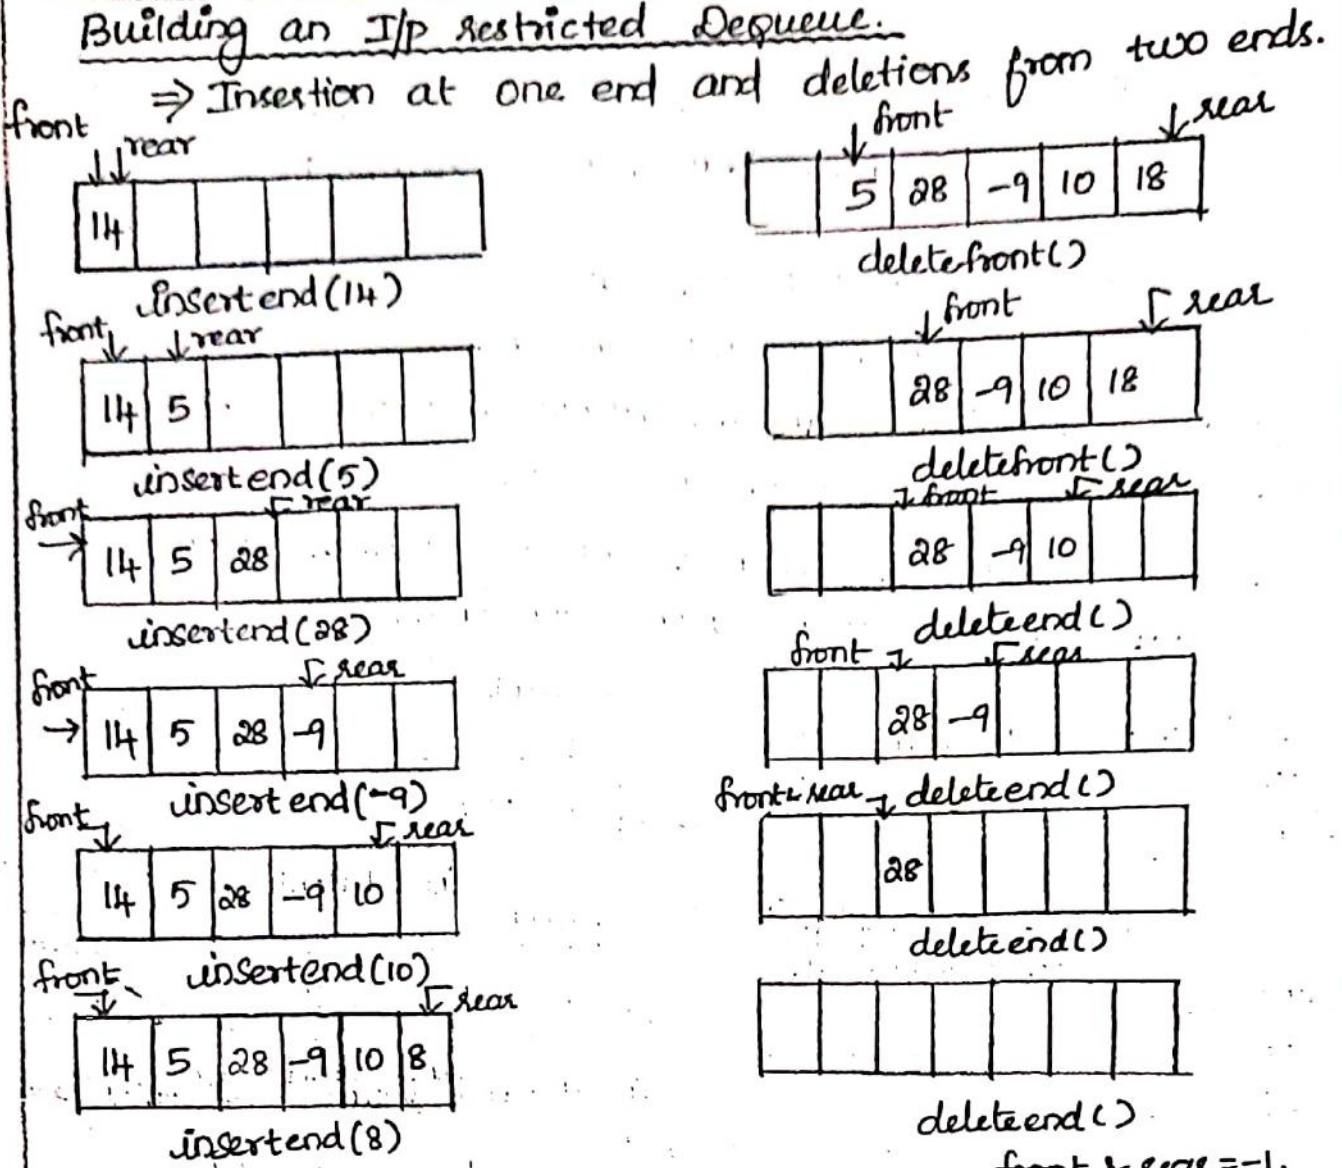 Building an I/p restricted Dequeue.
⇒ Insertion at one end and deletions from two ends.
front
rear
14
insertend(14)
front
rear
14 5
insertend(5)
front
rear
14 5 28
insertend(28)
front
rear
14 5 28 -9
insertend(-9)
front
rear
14 5 28 -9 10
insertend(10)
front
rear
14 5 28 -9 10 8
insertend(8)
front
rear
5 28 -9 10 18
deletefront()
front
rear
28 -9 10 18
deletefront()
front
rear
28 -9 10
deleteend()
front
rear
28 -9
deleteend()
front & rear
28
deleteend()
deleteend()
front & rear = -1.